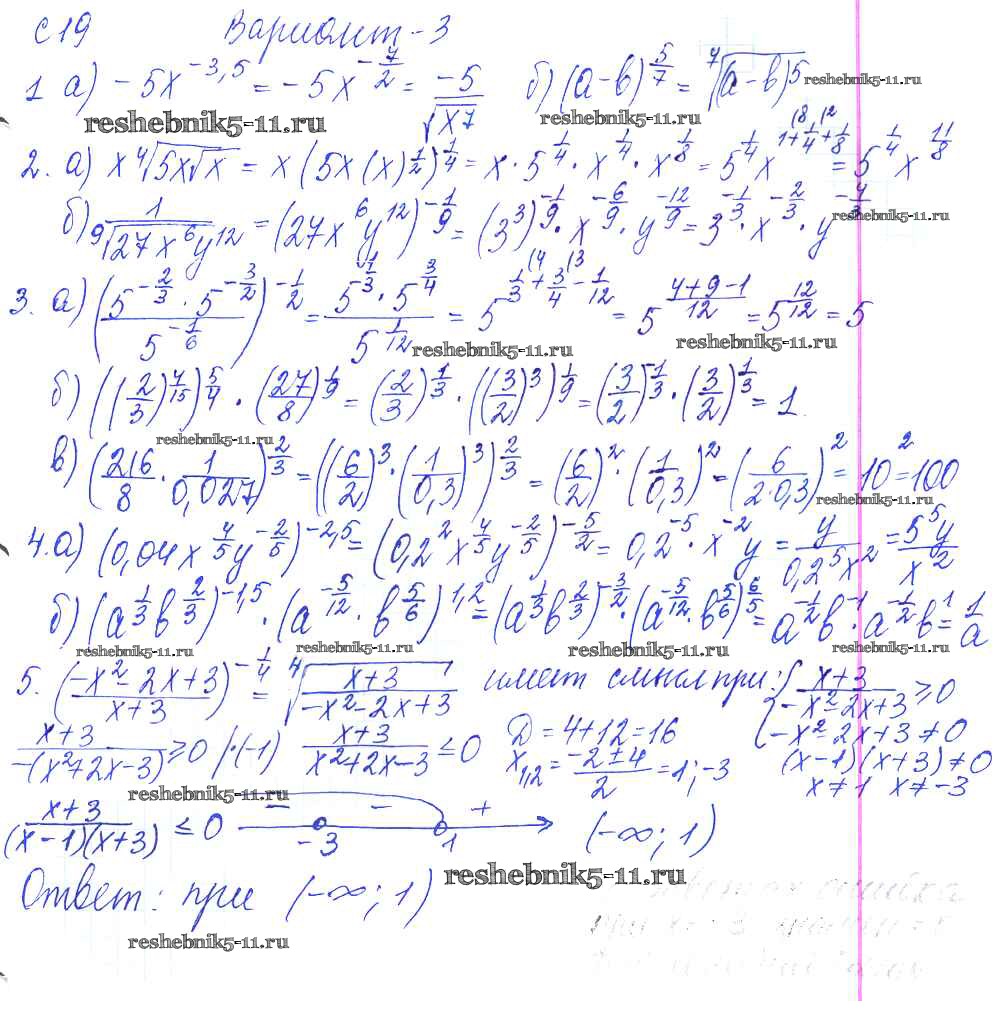 С19 Вариант-3
1 а) -5x^{-3,5} = -5x^{-7/2} = -5/√(x7) б) (a-b)^{5/7} = ⁷√((a-b)5 reshebnik5-11.ru
reshebnik5-11.ru reshebnik5-11.ru
2. а) x ⁴√(5x√x) = x(5x(x)^{1/2})^{1/4} = x·5^{1/4}·x^{1/4}·x^{1/8} = 5^{1/4}x^{1+1/4+1/8} = 5^{1/4}x^{11/8}
б) 1/⁹√(27x⁶y¹²) = (27x⁶y¹²)^{-1/9} = (3³)^{-1/9}·x^{-6/9}·y^{-12/9} = 3^{-1/3}·x^{-2/3}·y^{-4/3} reshebnik5-11.ru
3. а) ((5^{-2/3}·5^{-3/2})/5^{-1/6})^{-1/2} = (5^{1/3}·5^{3/4})/5^{1/12} = 5^{1/3+3/4-1/12} = 5^{(4+9-1)/12} = 5^{12/12} = 5
reshebnik5-11.ru reshebnik5-11.ru
б) ((2/3)^{4/15})^{5/4}·(27/8)^{1/9} = (2/3)^{1/3}·((3/2)³)^{1/9} = (3/2)^{-1/3}·(3/2)^{1/3} = 1.
reshebnik5-11.ru
в) (216/8·1/0,027)^{2/3} = ((6/2)³·(1/0,3)³)^{2/3} = (6/2)²·(1/0,3)² = (6/(2·0,3))² = 10² = 100
reshebnik5-11.ru
4. а) (0,04x^{4/5}y^{-2/5})^{-2,5} = (0,2²x^{4/5}y^{-2/5})^{-5/2} = 0,2^{-5}·x^{-2}y = y/(0,2⁵x²) = 5⁵y/x²
б) (a^{1/3}b^{2/3})^{-1,5}·(a^{-5/12}·b^{5/6})^{1,2} = (a^{1/3}b^{2/3})^{-3/2}·(a^{-5/12}·b^{5/6})^{6/5} = a^{-1/2}b^{-1}·a^{-1/2}b^{1} = 1/a
reshebnik5-11.ru reshebnik5-11.ru reshebnik5-11.ru
5. ((-x²-2x+3)/(x+3))^{-1/4} = ⁴√((x+3)/(-x²-2x+3)) имеет смысл при: { (x+3)/(-x²-2x+3) ≥ 0
-x²-2x+3 ≠ 0
(x+3)/(-(x²+2x-3)) ≥ 0 |·(-1) (x+3)/(x²+2x-3) ≤ 0 Д = 4+12 = 16
x_{1,2} = (-2±4)/2 = 1; -3 (x-1)(x+3) ≠ 0
x ≠ 1 x ≠ -3
reshebnik5-11.ru
(x+3)/((x-1)(x+3)) ≤ 0 - - + -3 1 (-∞; 1)
Ответ: при (-∞; 1) reshebnik5-11.ru
reshebnik5-11.ru